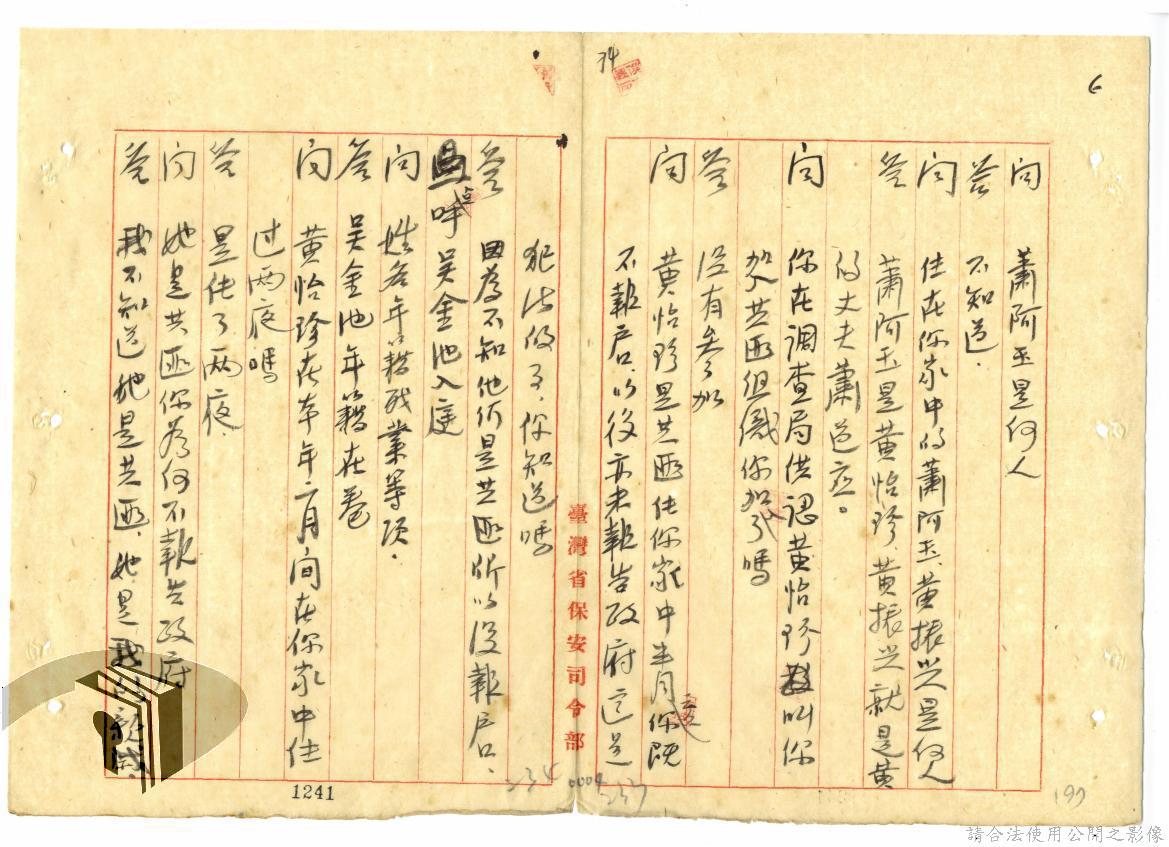 74
6
問 蕭阿玉是何人
答 不知道.
問 住在你家中的蕭阿玉、黄振興是何人
答 蕭阿玉是黄怡珍、黄振興就是黄
的丈夫蕭道应。
問 你在調查局供認黄怡珍叫你
加入共匪組織你加入嗎
答 没有参加
問 黄怡珍是共匪住你家中半月你既
不報户口以後亦未報告政府這是
臺灣省保安司令部
犯法的事,你知道嗎
答 因為不知他們是共匪所以没報户口、
点呼吴金池入庭
問 姓名年籍职業等項.
答 吴金池年籍在卷
問 黄怡珍在本年二月间在你家中住
过两夜嗎
答 是住了两夜.
問 她是共匪你為何不報告政府
答 我不知道她是共匪、她是我的親戚.
1241
234
0004
237
197
請合法使用公開之影像